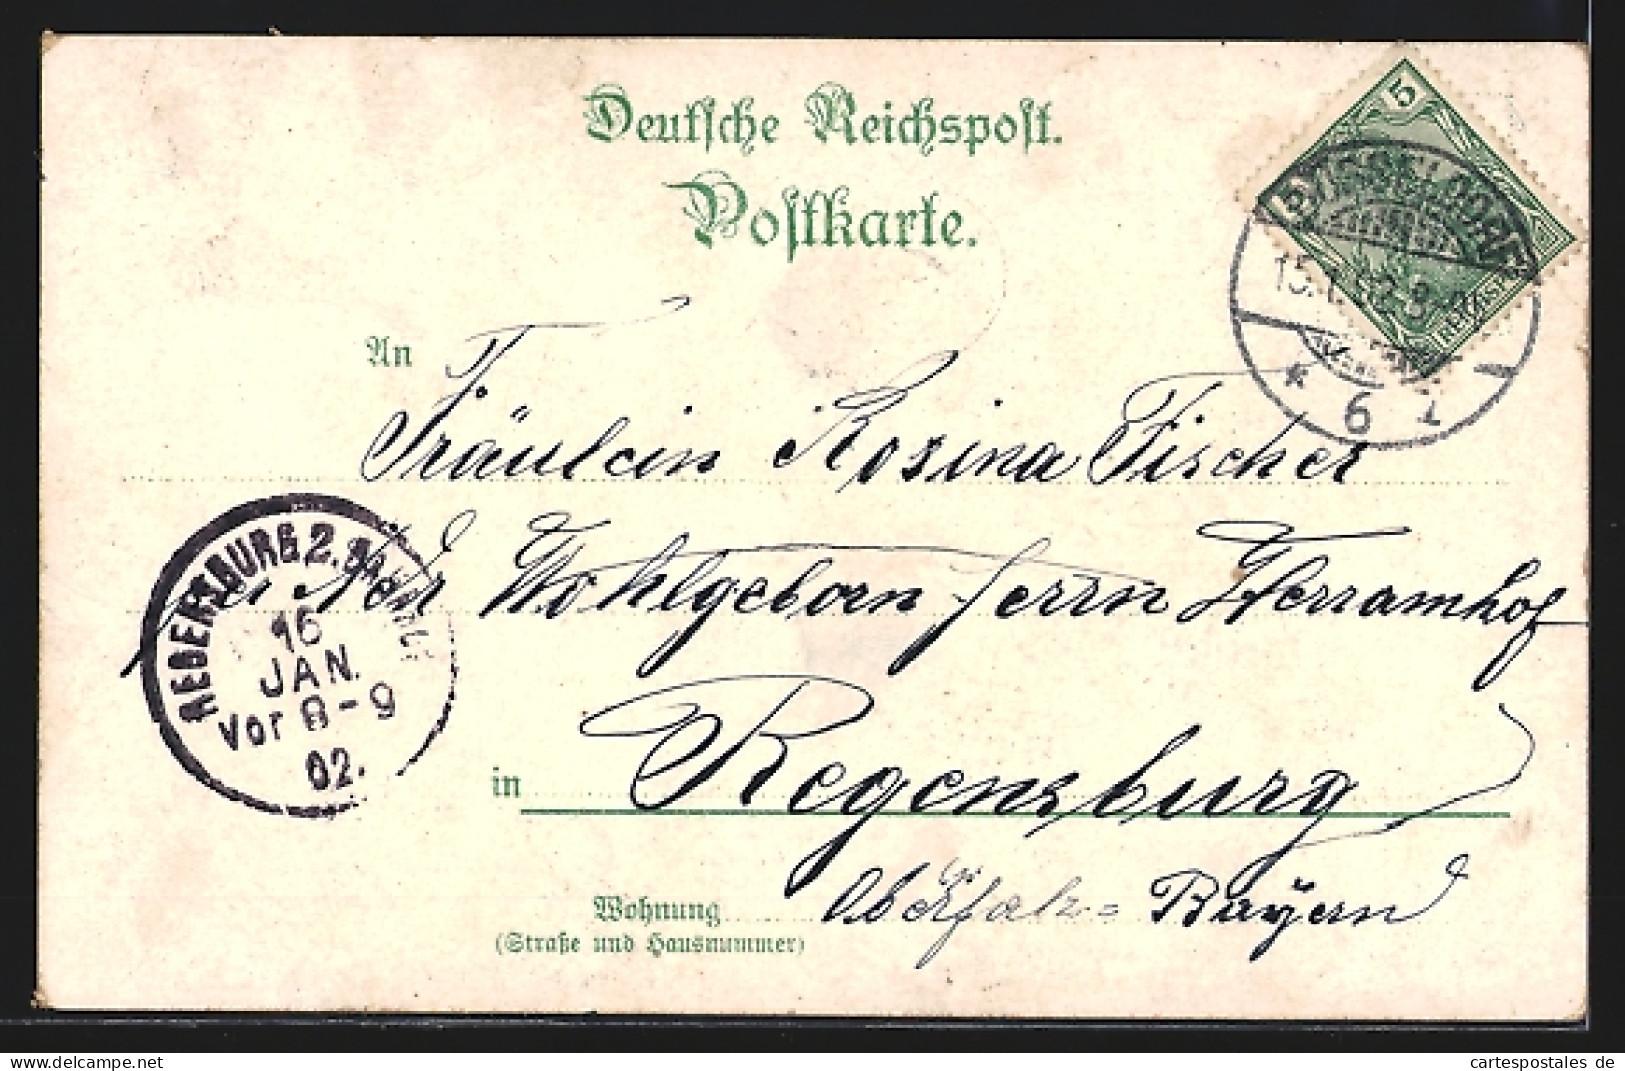 Deutsche Reichspost.
Postkarte.
5
DÜSSELDORF
15.1.02 8-
* 6 I
An
Fräulein Rosina Fischer
Wohlgeborn Herrn Herramhof
REGENSBURG 2. BAHNHOF
16
JAN.
Vor 8-9
02.
in Regensburg
Oberpfalz = Bayern
Wohnung
(Straße und Hausnummer)
cartespostales de